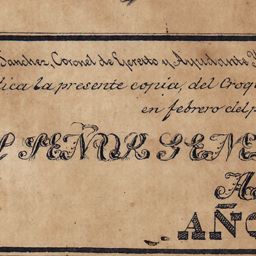 Sanchez, Coronel de Ejercito y Ayudante
dica la presente copia, del Croqu
en febrero del p
L SEÑOR GENE
A
AÑO